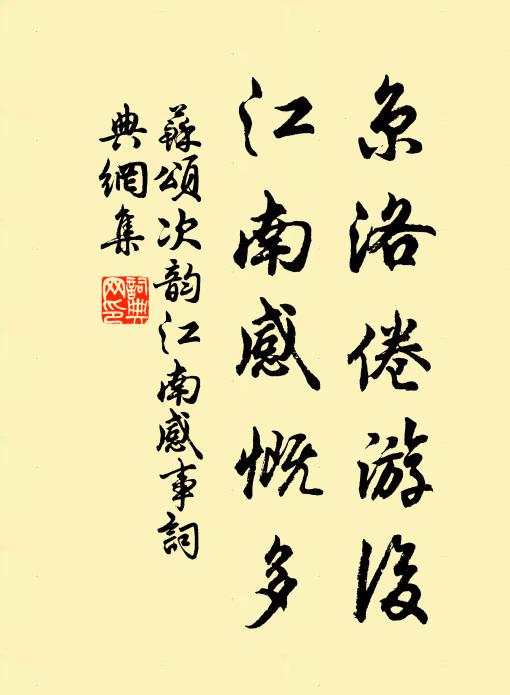 京洛倦游後
江南感慨多
蘇頌次韵江南感事詞
典網集
詞典
网印